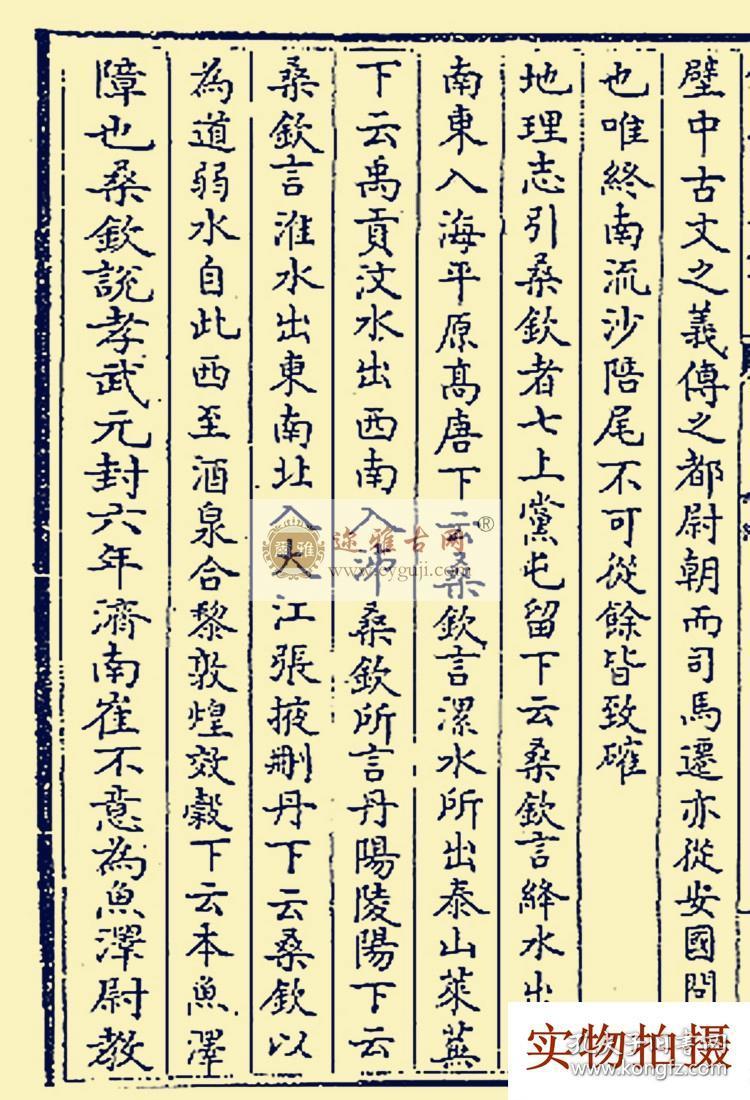 壁中古文之義傳之都尉朝而司馬遷亦從安國問
也唯終南流沙陪尾不可從餘皆致確
地理志引桑欽者七上黨屯留下云桑欽言絳水出
南東入海平原髙唐下云桑欽言漯水所出泰山萊蕪
下云禹貢汶水出西南入泲桑欽所言丹陽陵陽下云
桑欽言淮水出東南北入大江張掖刪丹下云桑欽以
為道弱水自此西至酒泉合黎敦煌效穀下云本魚澤
障也桑欽說孝武元封六年濟南崔不意為魚澤尉教
弥雅古网®
爾雅
www.cyguji.com
实物拍摄
孔夫子旧书网
www.kongfz.com